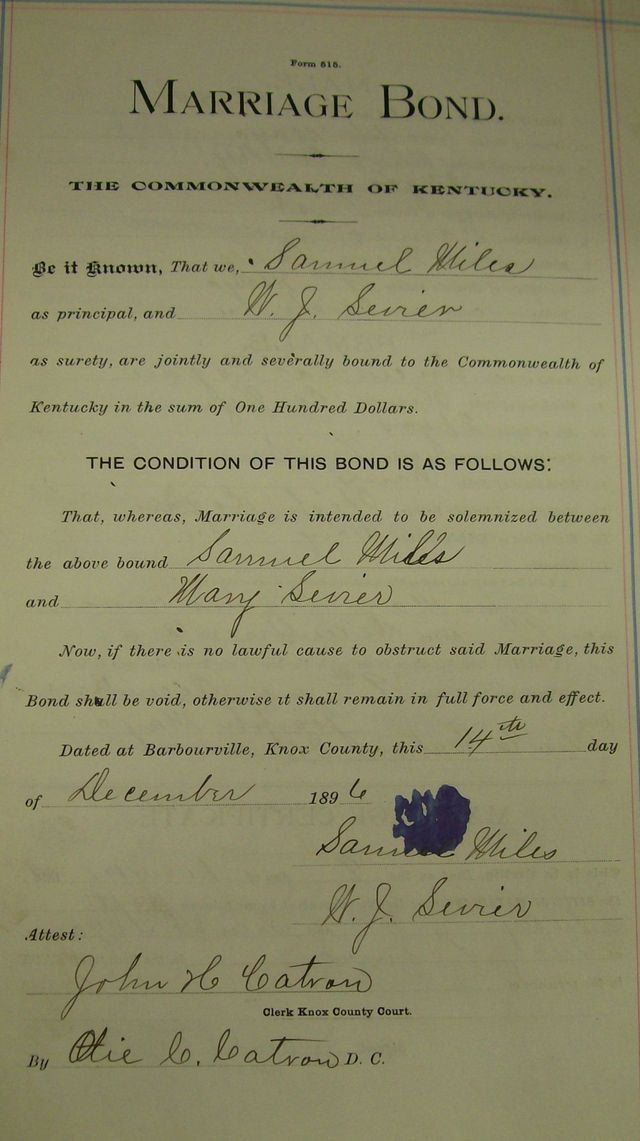 Form 515.
MARRIAGE BOND.
THE COMMONWEALTH OF KENTUCKY.
Be it Known, That we, Samuel Miles
as principal, and W. J. Sevier
as surety, are jointly and severally bound to the Commonwealth of
Kentucky in the sum of One Hundred Dollars.
THE CONDITION OF THIS BOND IS AS FOLLOWS:
That, whereas, Marriage is intended to be solemnized between
the above bound Samuel Miles
and Mary Sevier
Now, if there is no lawful cause to obstruct said Marriage, this
Bond shall be void, otherwise it shall remain in full force and effect.
Dated at Barbourville, Knox County, this 14th day
of December 1896
Samuel Miles
W. J. Sevier
Attest:
John H Catron
Clerk Knox County Court.
By C. Catron D. C.